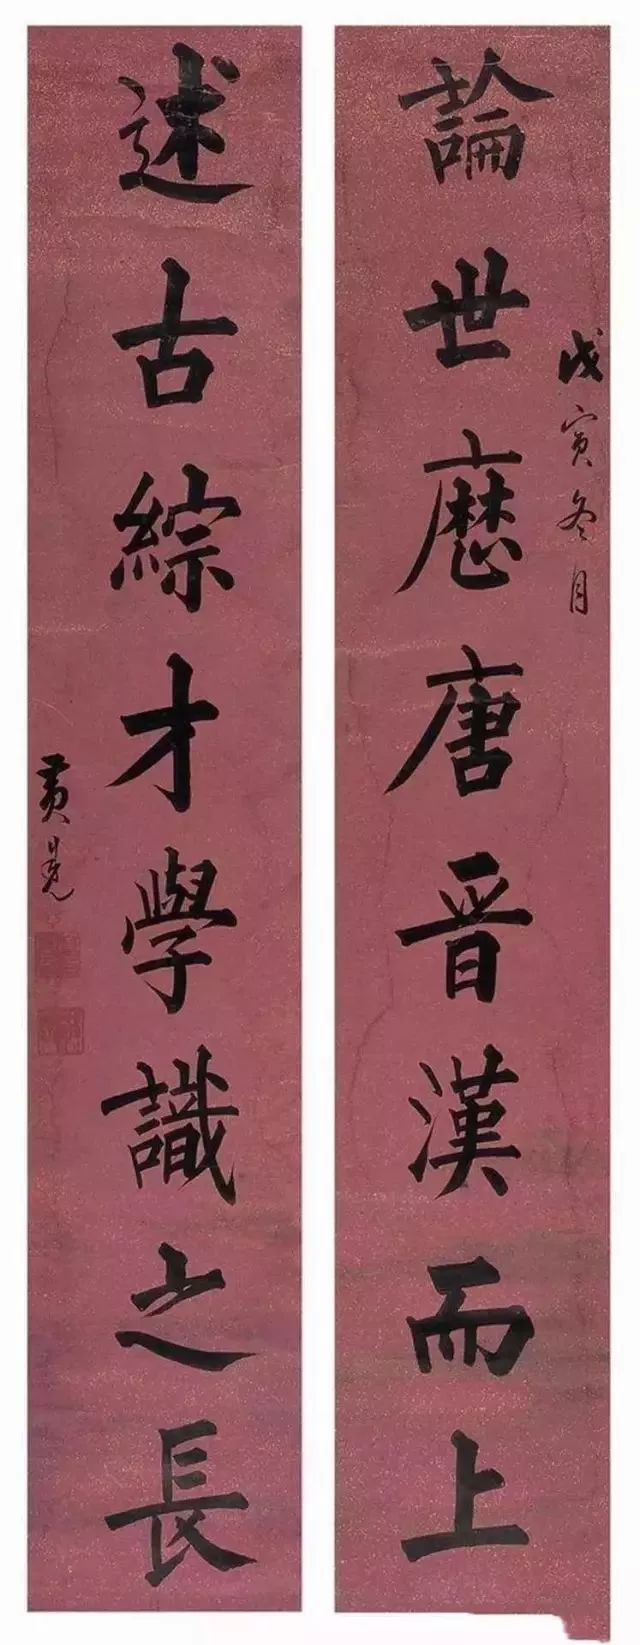 論世厯唐晉漢而上
戊寅冬月
述古綜才學識之長
黄晃